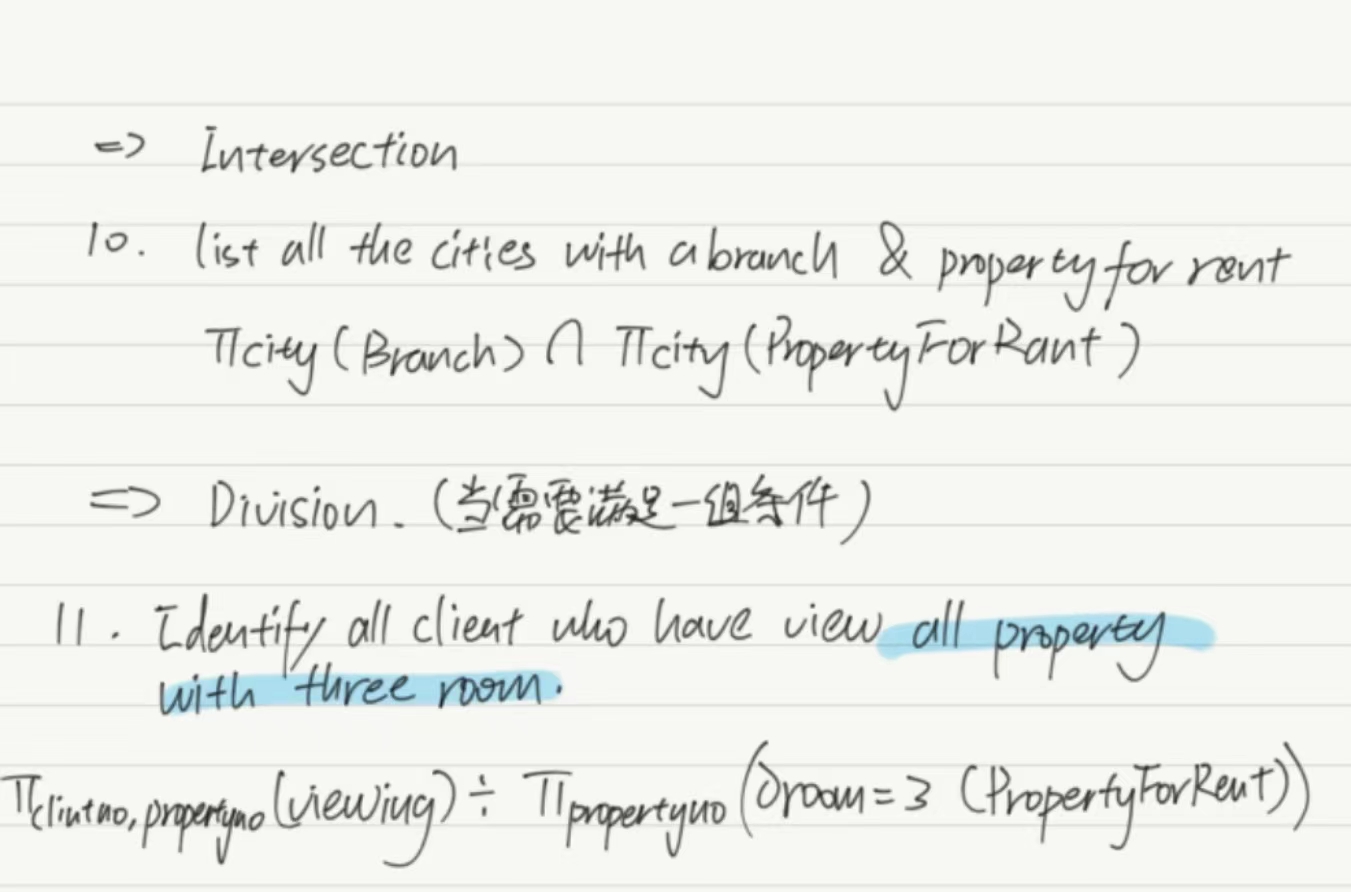 => Intersection
10. list all the cities with a branch & property for rent
πcity (Branch) ∩ πcity (PropertyForRant)
=> Division. (当需要满足一组条件)
11. Identify all client who have view all property
with three room.
πclintno, propertyno (viewing) ÷ πpropertyno (σroom = 3 (PropertyForRent))